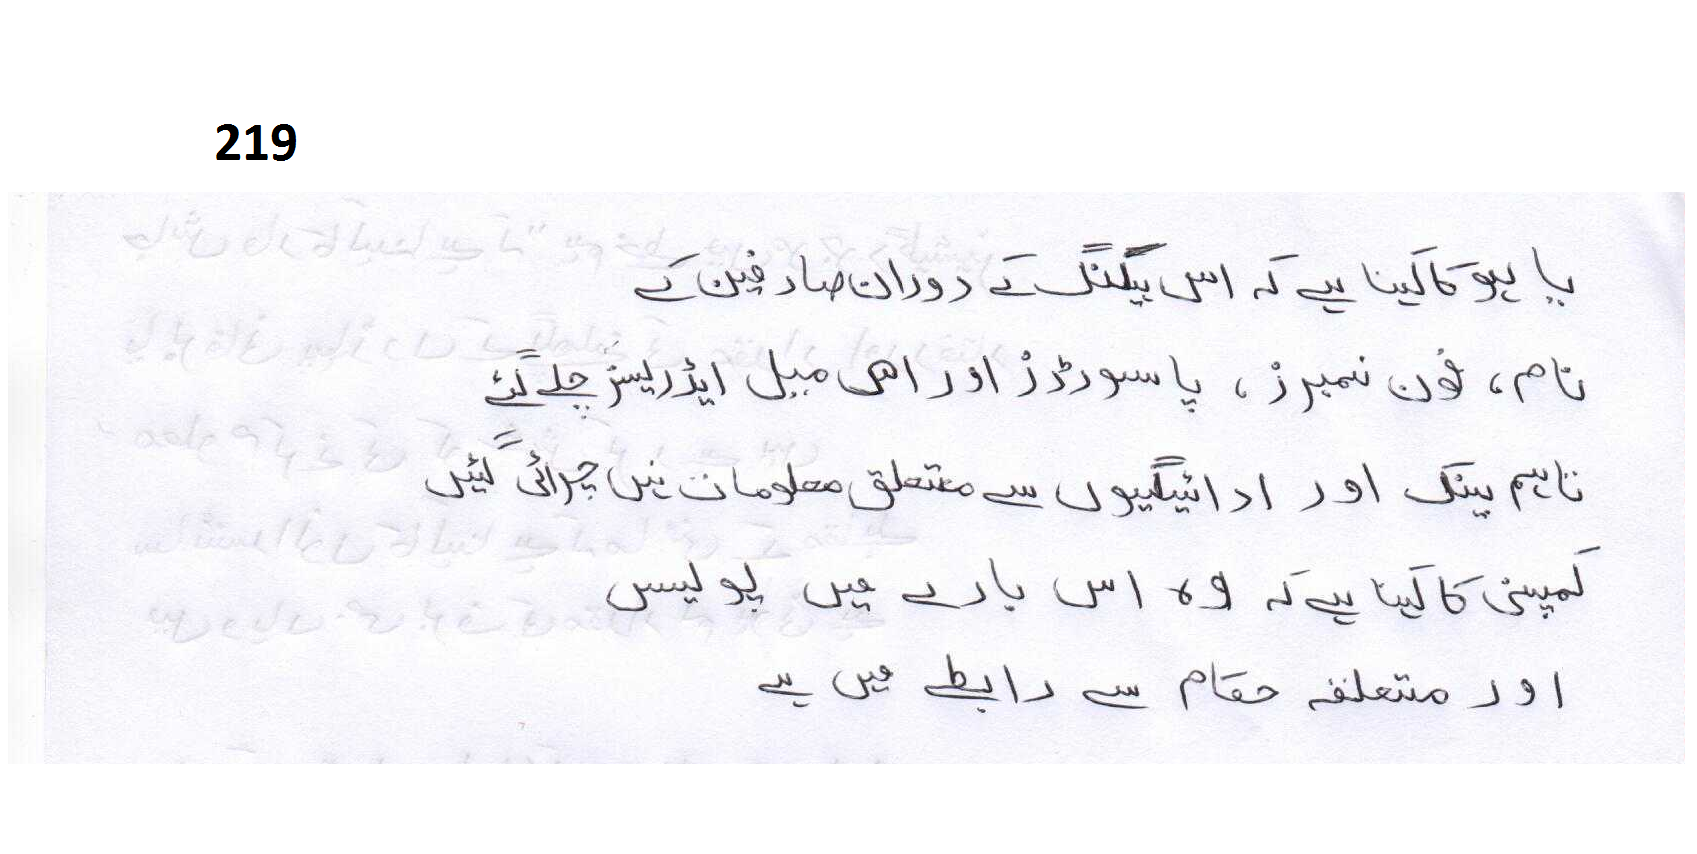 219
یاہو کا کہنا ہے کہ اس ہیکنگ کے دوران صارفین کے
نام، فون نمبرز، پاسورڈز اور ای میل ایڈریسز چلے گئے
تاہم بینک اور ادائیگیوں سے متعلق معلومات نہیں چرائی گئیں
کمپنی کا کہنا ہے کہ وہ اس بارے میں پولیس
اور متعلقہ حکام سے رابطے میں ہے